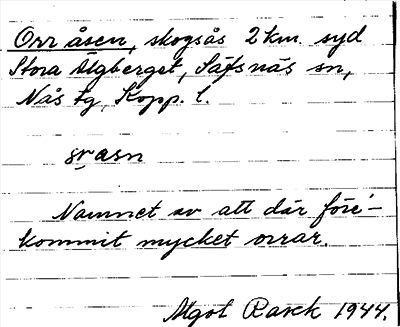 Orr åsen, skogsås 2 km. syd
Stora Älgberget, Säfsnäs sn,
Nås tg, Kopp. l.
Namnet av att där före-
kommit mycket orrar.
Algot Rasck 1944.